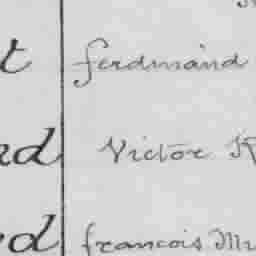 t ferdinand
rd Victor
ed francois